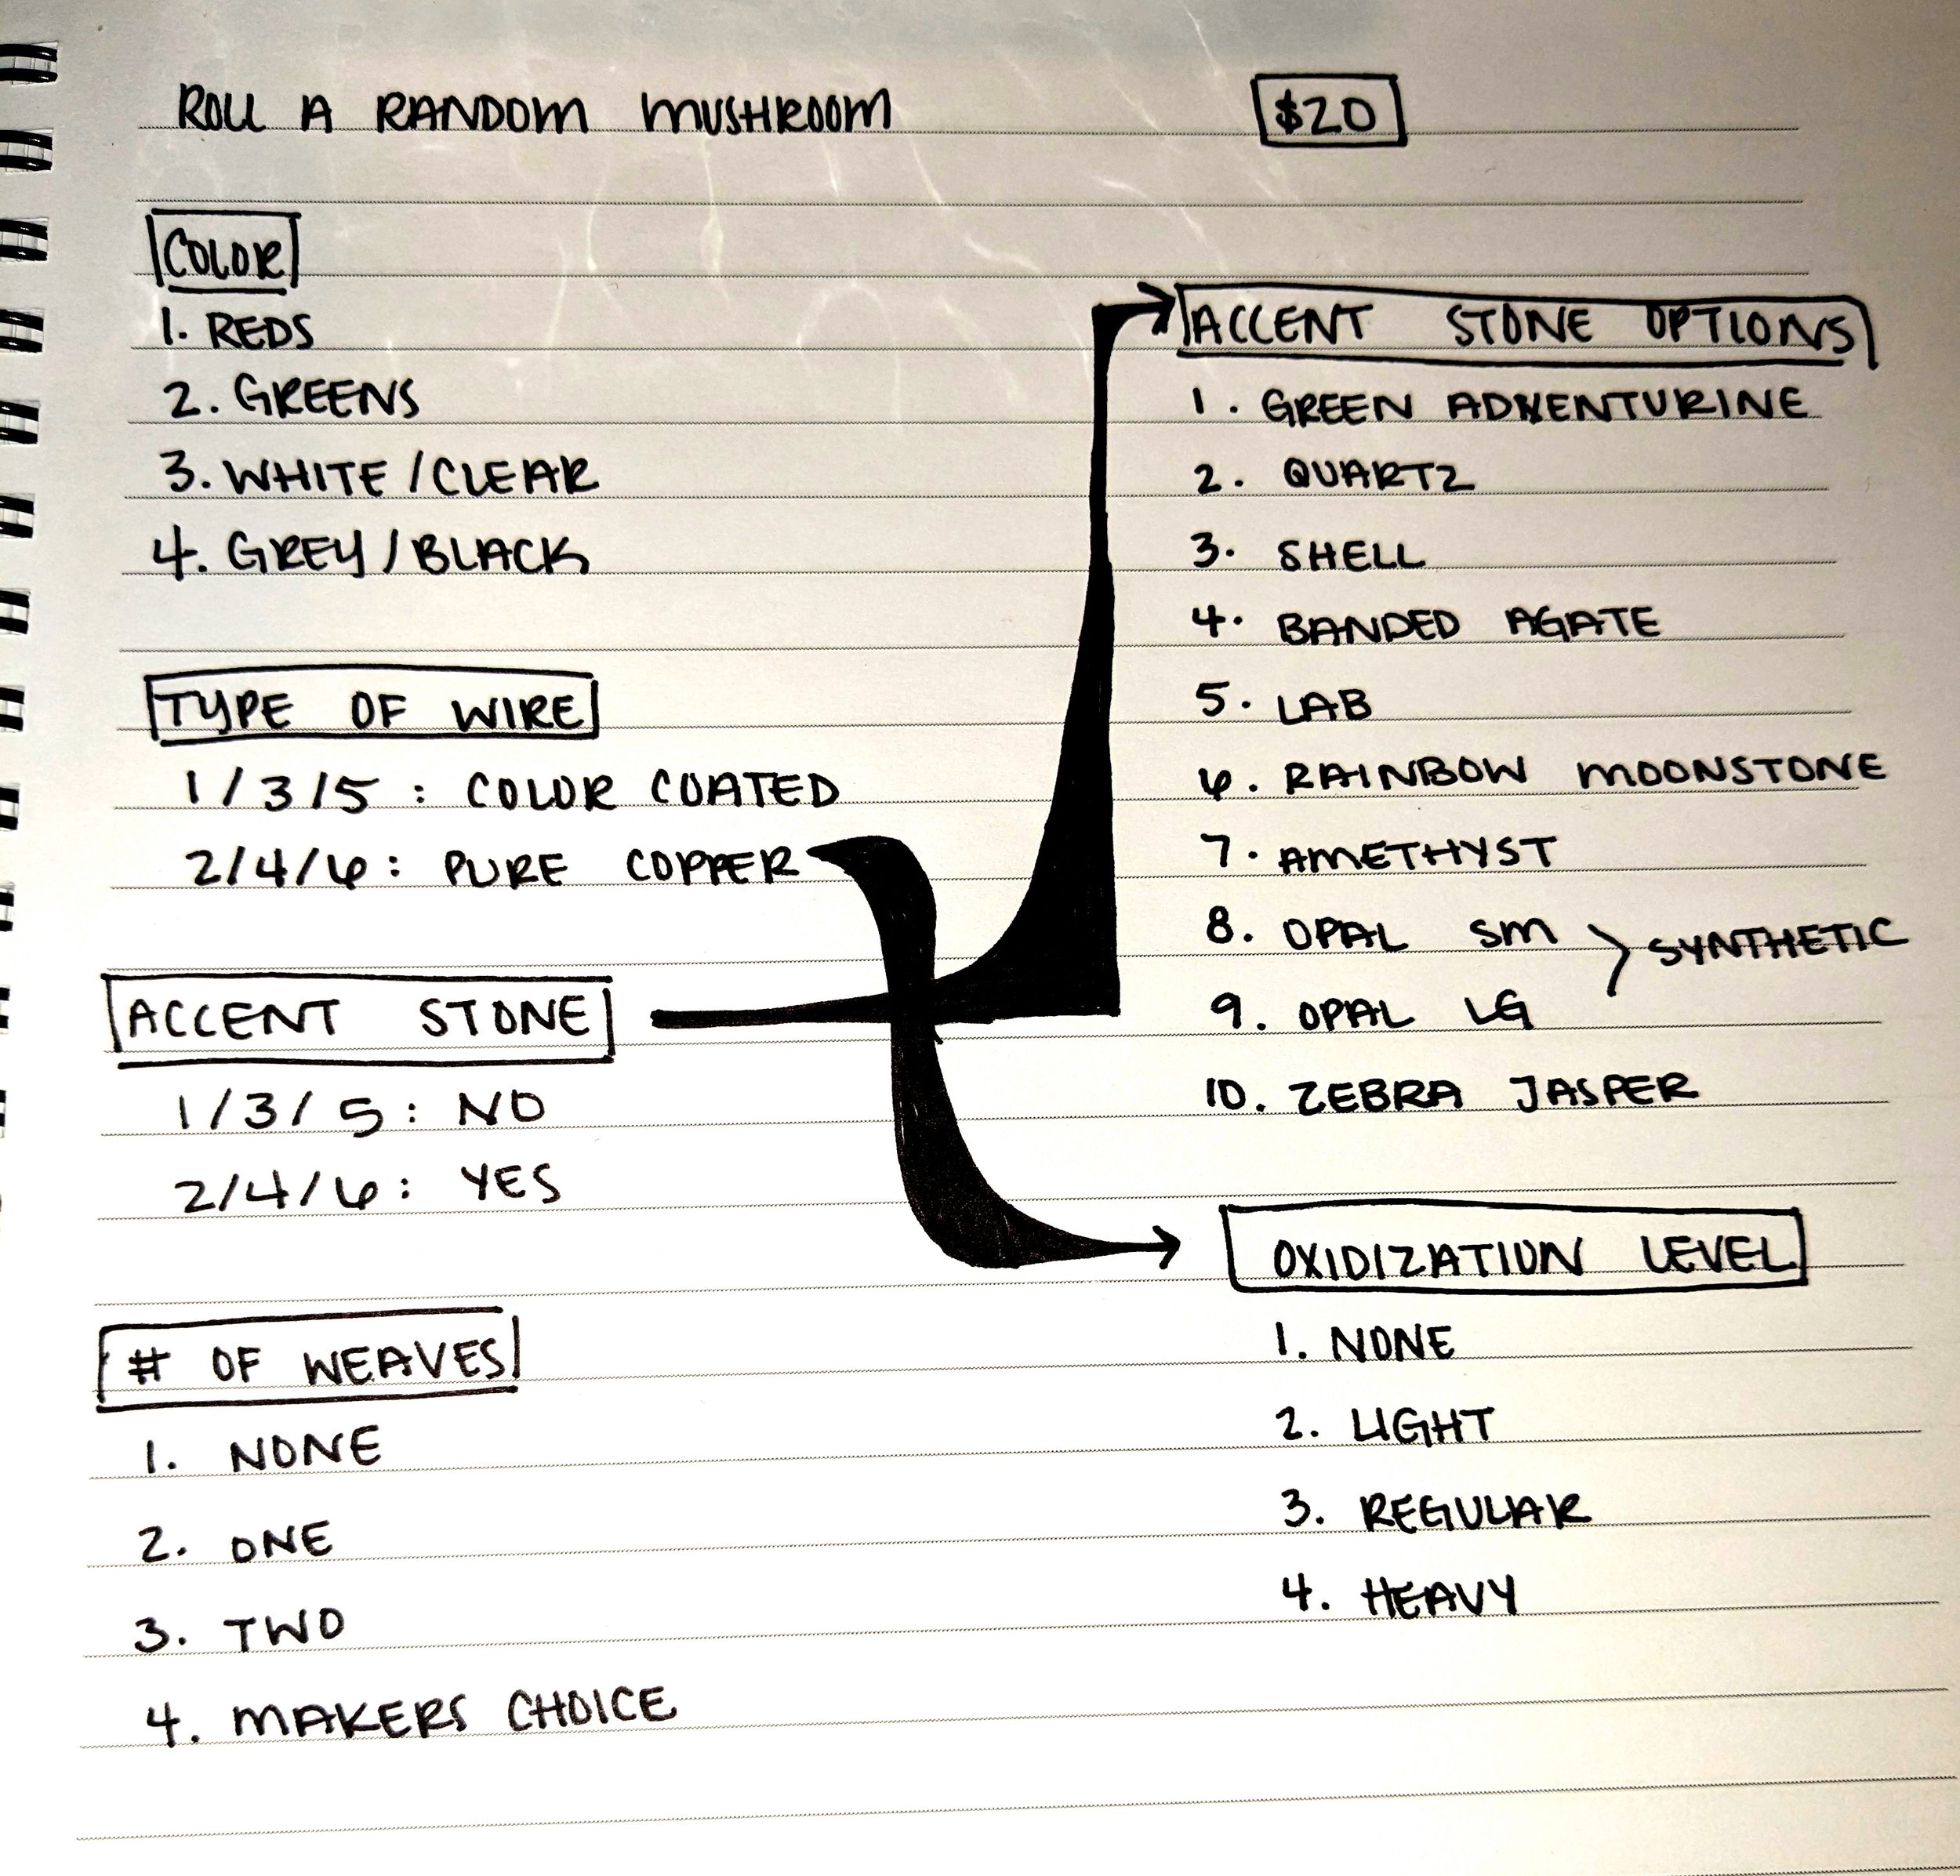 ROLL A RANDOM MUSHROOM $20
COLOR
1. REDS
2. GREENS
3. WHITE / CLEAR
4. GREY / BLACK
TYPE OF WIRE
1/3/5 : COLOR COATED
2/4/6 : PURE COPPER
ACCENT STONE
1/3/5 : NO
2/4/6 : YES
# OF WEAVES
1. NONE
2. ONE
3. TWO
4. MAKERS CHOICE
ACCENT STONE OPTIONS
1. GREEN ADVENTURINE
2. QUARTZ
3. SHELL
4. BANDED AGATE
5. LAB
6. RAINBOW MOONSTONE
7. AMETHYST
8. OPAL SM
SYNTHETIC
9. OPAL LG
10. ZEBRA JASPER
OXIDIZATION LEVEL
1. NONE
2. LIGHT
3. REGULAR
4. HEAVY